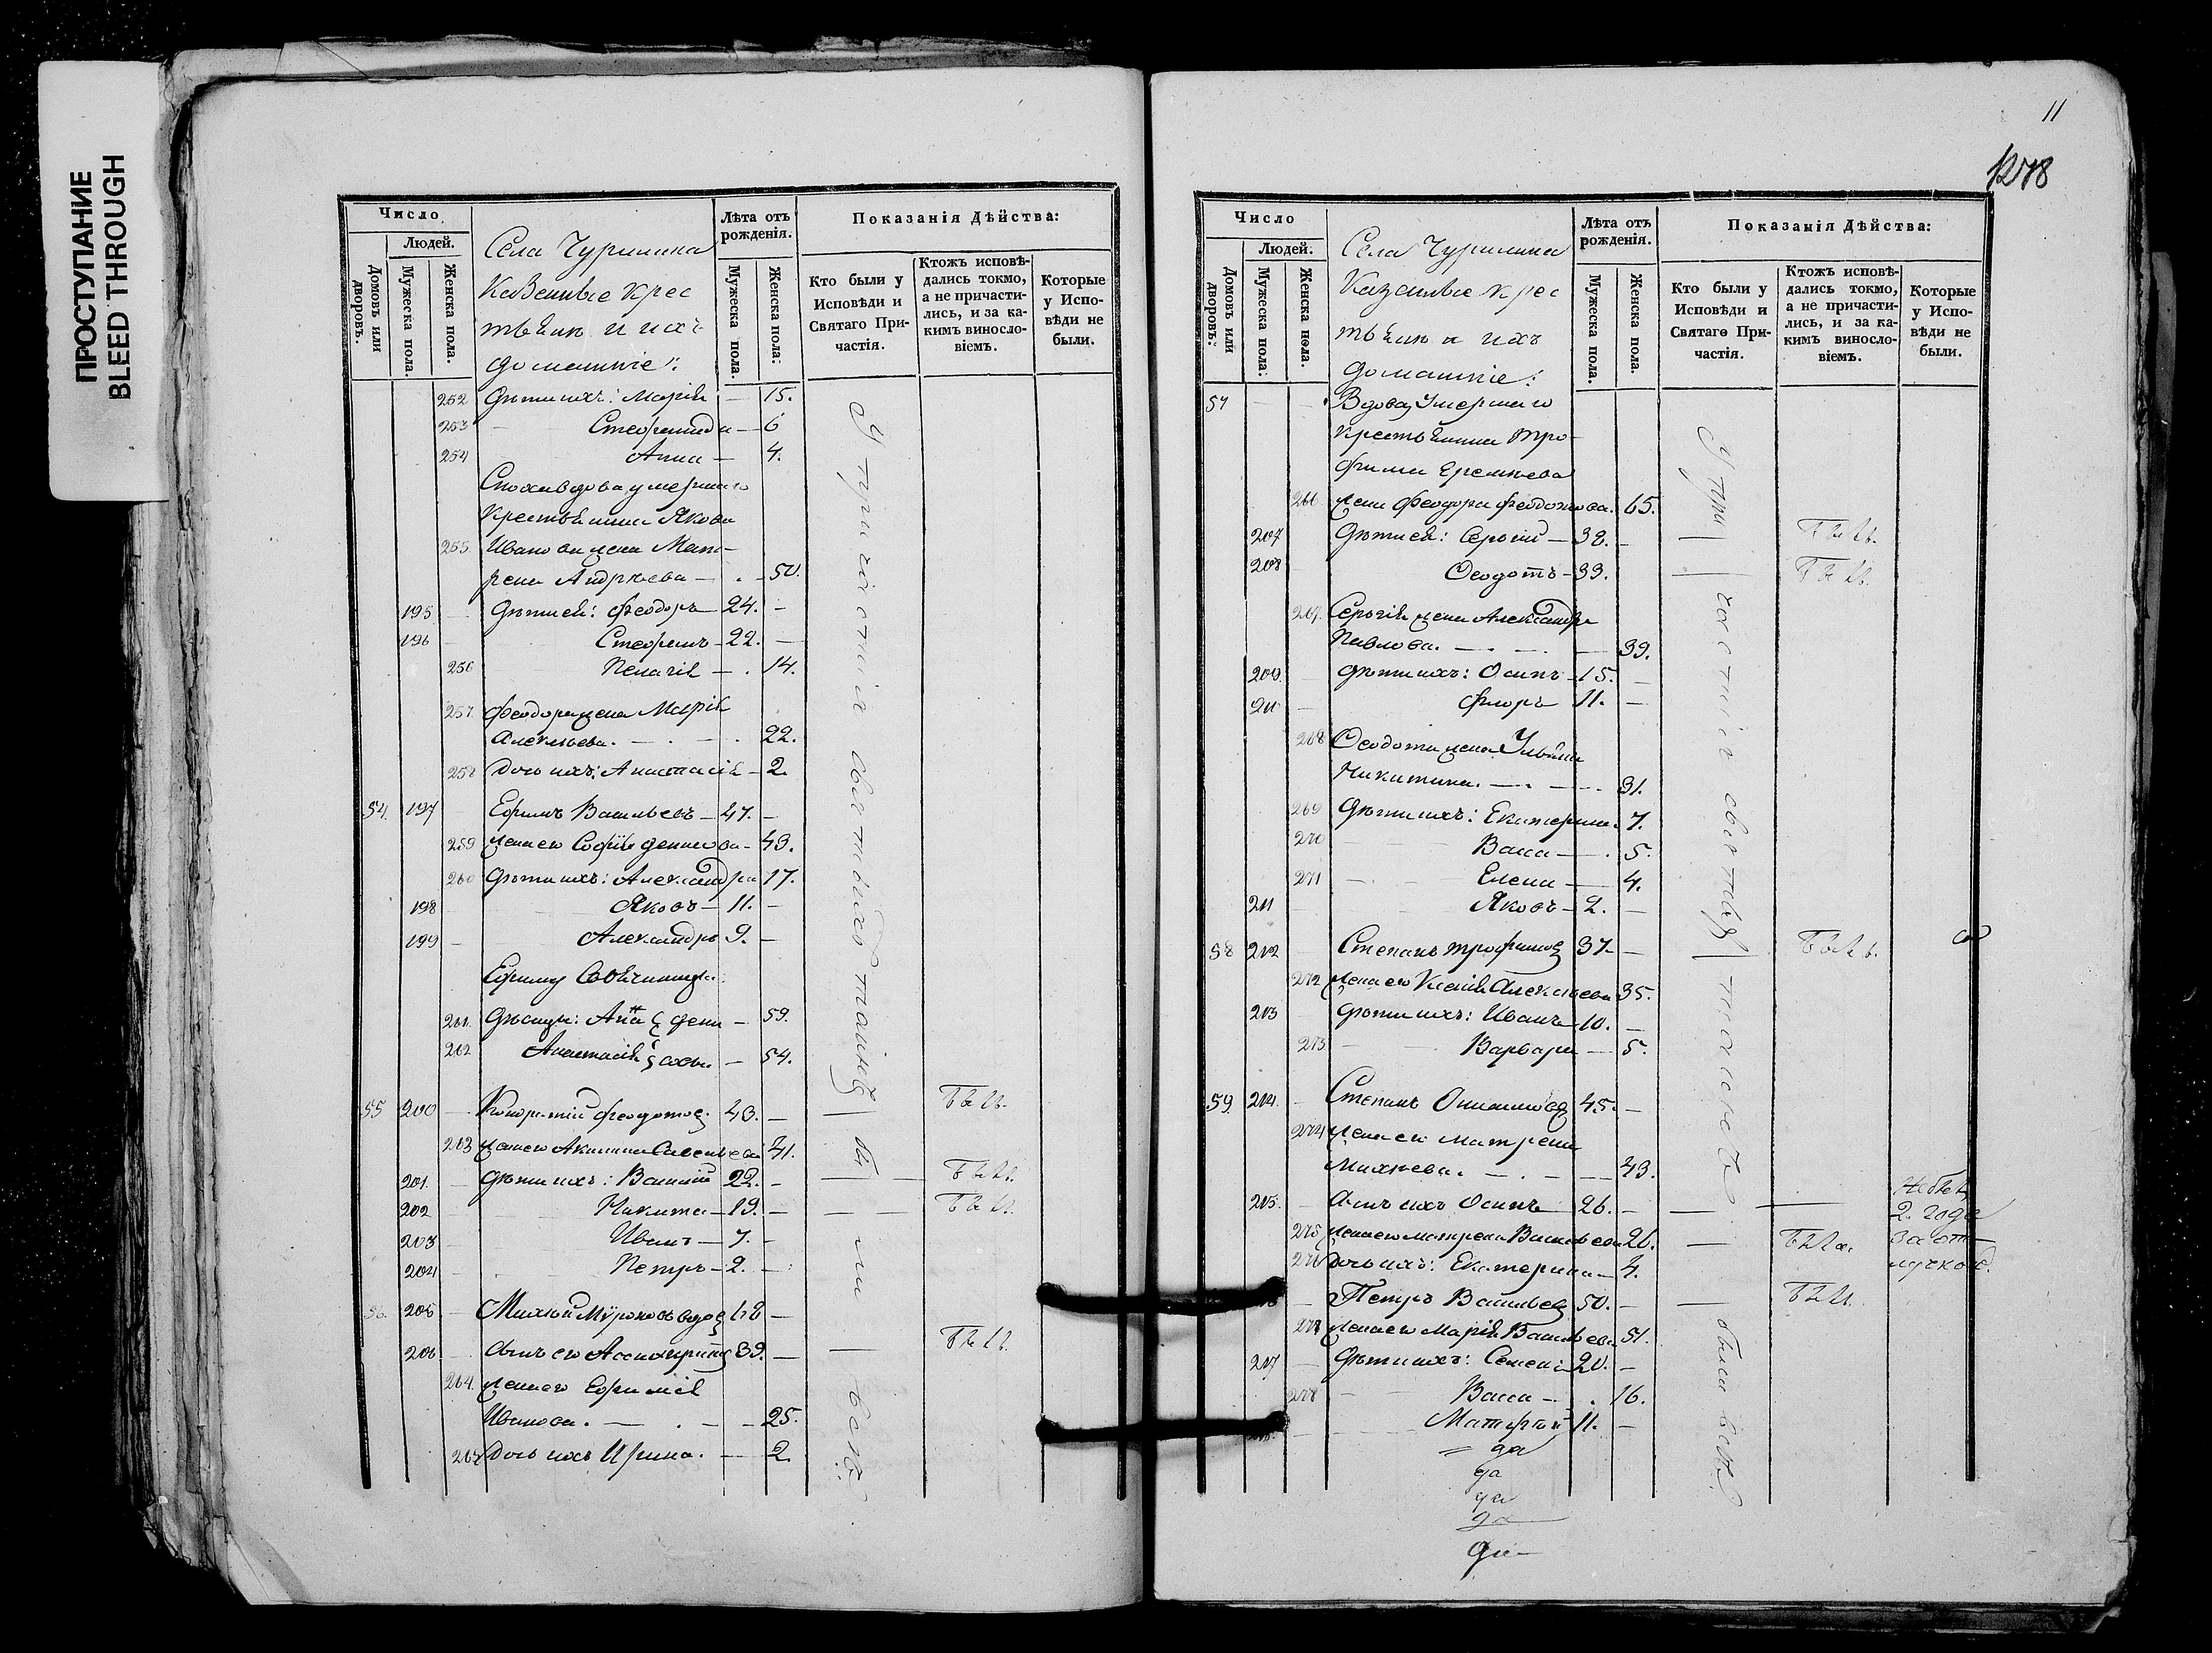 ПРОСТУПАНИЕ
BLEED THROUGH
Число
Людей.
Домовъ или дворовъ.
Мужеска пола.
Женска пола.
Села Чурилина
Казенные крес
тьяне и ихъ
домашніе:
Лѣта отъ рожденія.
Мужеска пола.
Женска пола.
Показанія Дѣйства:
Кто были у Исповѣди и Святаго Причастія.
Ктожъ исповѣдались токмо, а не причастились, и за какимъ винословіемъ.
Которые у Исповѣди не были.
252 Дѣти ихъ: Марія — 15.
253 Стефанида — 6
254 Анна — 4.
Сноха вдова умершаго
крестьянина Якова
255. Иванова жена Мат-
рена Андреева — 50.
195 Дѣти ея: Феодоръ — 24. —
196 Стефанъ — 22. —
256 Пелагія — 14.
257. Феодора жена Марія
Алексѣева. — 22.
258 Дочь ихъ: Анастасія — 2.
54. 197 Ефимъ Васильевъ — 47. —
259 Жена его Софія Денисова — 43.
260 Дѣти ихъ: Александра 17.
198 Яковъ — 11. —
199 Александръ 9. —
Ефиму
261. Дѣвицы: Анна — 59.
262 Анастасія — 54.
55 200 Кондратій Федотов. 43. —
263 Жена его Акилина Савельева 41.
201. Дѣти ихъ: Василій 22. —
202 Никита — 19. —
203 Иванъ — 7. —
204 Петръ — 2. —
56. 205 Михей Мироновъ вдов 68 —
206 Сынъ его 39. —
264. Жена его Ефимія
Иванова. — 25.
265 Дочь ихъ Ирина. — 2.
У причастія святыхъ таинъ бы ли всѣ.
11
1278
Число
Людей.
Домовъ или дворовъ.
Мужеска пола.
Женска пола.
Села Чурилина
Казенные крес
тьяне и ихъ
домашніе:
Лѣта отъ рожденія.
Мужеска пола.
Женска пола.
Показанія Дѣйства:
Кто были у Исповѣди и Святаго Причастія.
Ктожъ исповѣдались токмо, а не причастились, и за какимъ винословіемъ.
Которые у Исповѣди не были.
57 Вдова умершаго
крестьянина Тро-
фима Еремѣева
266 жена Феодора Феодотова. 65.
207 Дѣти ея: Сергій — 38. —
208 Феодотъ — 33.
267. Сергія жена Александра
Павлова. — 39.
209. Дѣти ихъ: Осипъ — 15. —
210 Флоръ 11. —
268 Феодота жена Ульяна
Никитина. — 31.
269 Дѣти ихъ: Екатерина. 7.
270 Васса — 5.
271 Елена — 4.
211 Яковъ — 2. —
58 212 Степанъ Трофимов 37 —
272 Жена его Ксенія Алексѣева 35.
213 Дѣти ихъ: Иванъ — 10. —
273 Варвара — 5.
59. 214. Степанъ 45. —
274 Жена его Матрена
Михеева. — 43.
215. Сынъ ихъ Осипъ 26. —
2. года
за от-
лучкою.
275 Жена его Матрена Васильева 26.
276 Дочь ихъ: Екатерина — 4.
Петръ Васильев 50. —
277 Жена его Марія Васильева 51.
217 Дѣти ихъ: Семенъ 20. —
278 Васса — 16.
Матфей 11. —
да
да
да
да
да
У при частія святых таинъ были всѣ